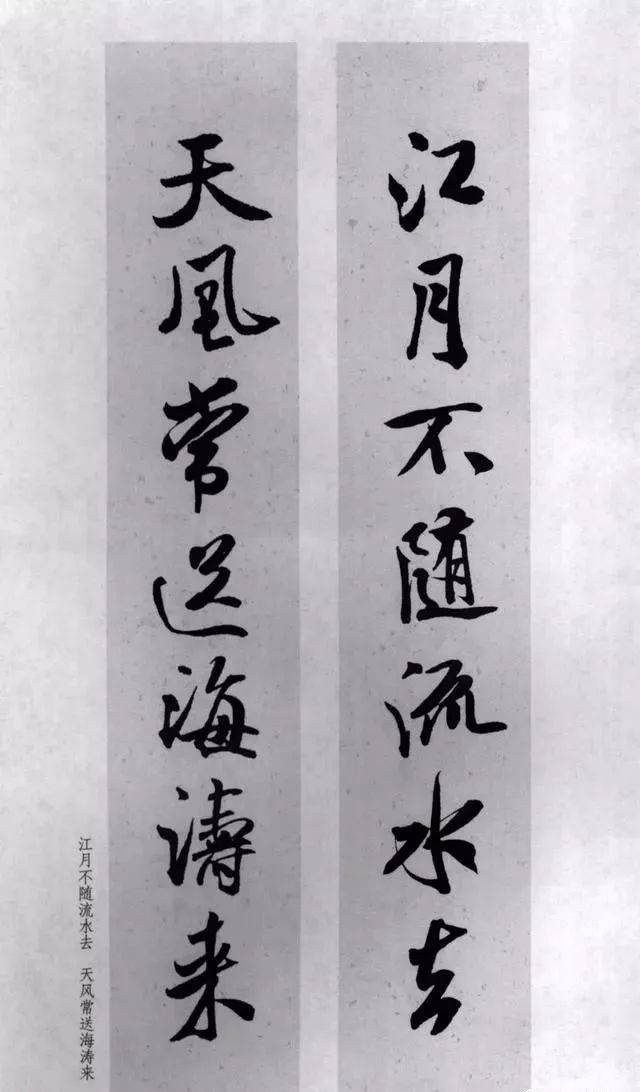 江月不随流水去
天风常送海涛来
江月不随流水去 天风常送海涛来